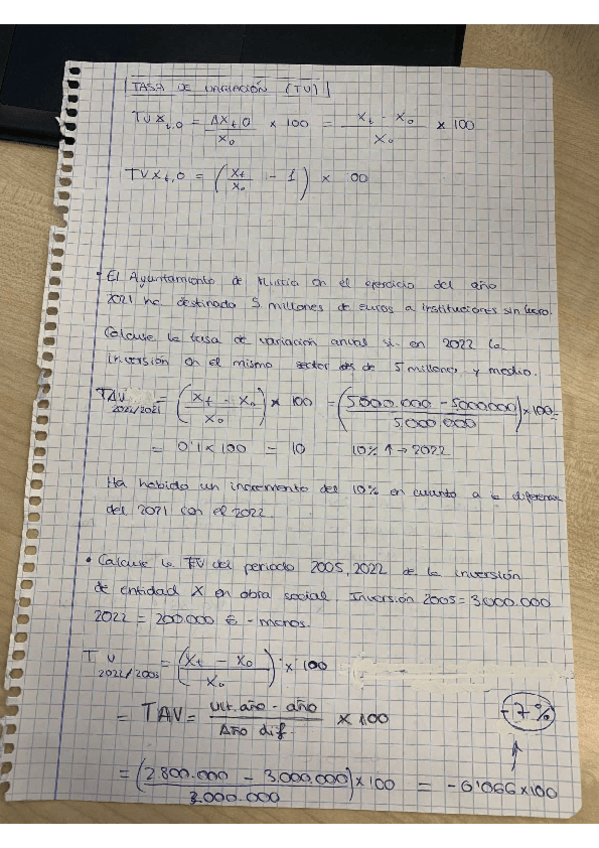 TASA DE VARIACIÓN (TV)
TV X t,0 = ΔX t,0 / X₀ × 100 = Xt - X₀ / X₀ × 100
TV X t,0 = (Xt / X₀ - 1) × 00
• El Ayuntamiento de Murcia en el ejercicio del año
2021 ha destinado 5 millones de euros a instituciones sin lucro.
Calcule la tasa de variación anual si en 2022 la
inversión en el mismo sector es de 5 millones y medio.
TAV 2022/2021 = (Xt - X₀ / X₀) × 100 = (5500.000 - 5000000 / 5.000.000) × 100 =
= 0'1 × 100 = 10 10% ↑ → 2022
Ha habido un incremento del 10% en cuanto a la diferencia
del 2021 con el 2022.
• Calcule la TV del periodo 2005, 2022 de la inversión
de entidad X en obra social. Inversión 2005 = 3.000.000
2022 = 200.000 € - menos.
TV 2022/2005 = (Xt - X₀ / X₀) × 100
= TAV = Ult. año - año / Año dif. × 100
-7%
= (2.800.000 - 3.000.000 / 3.000.000) × 100 = -0'066 × 100